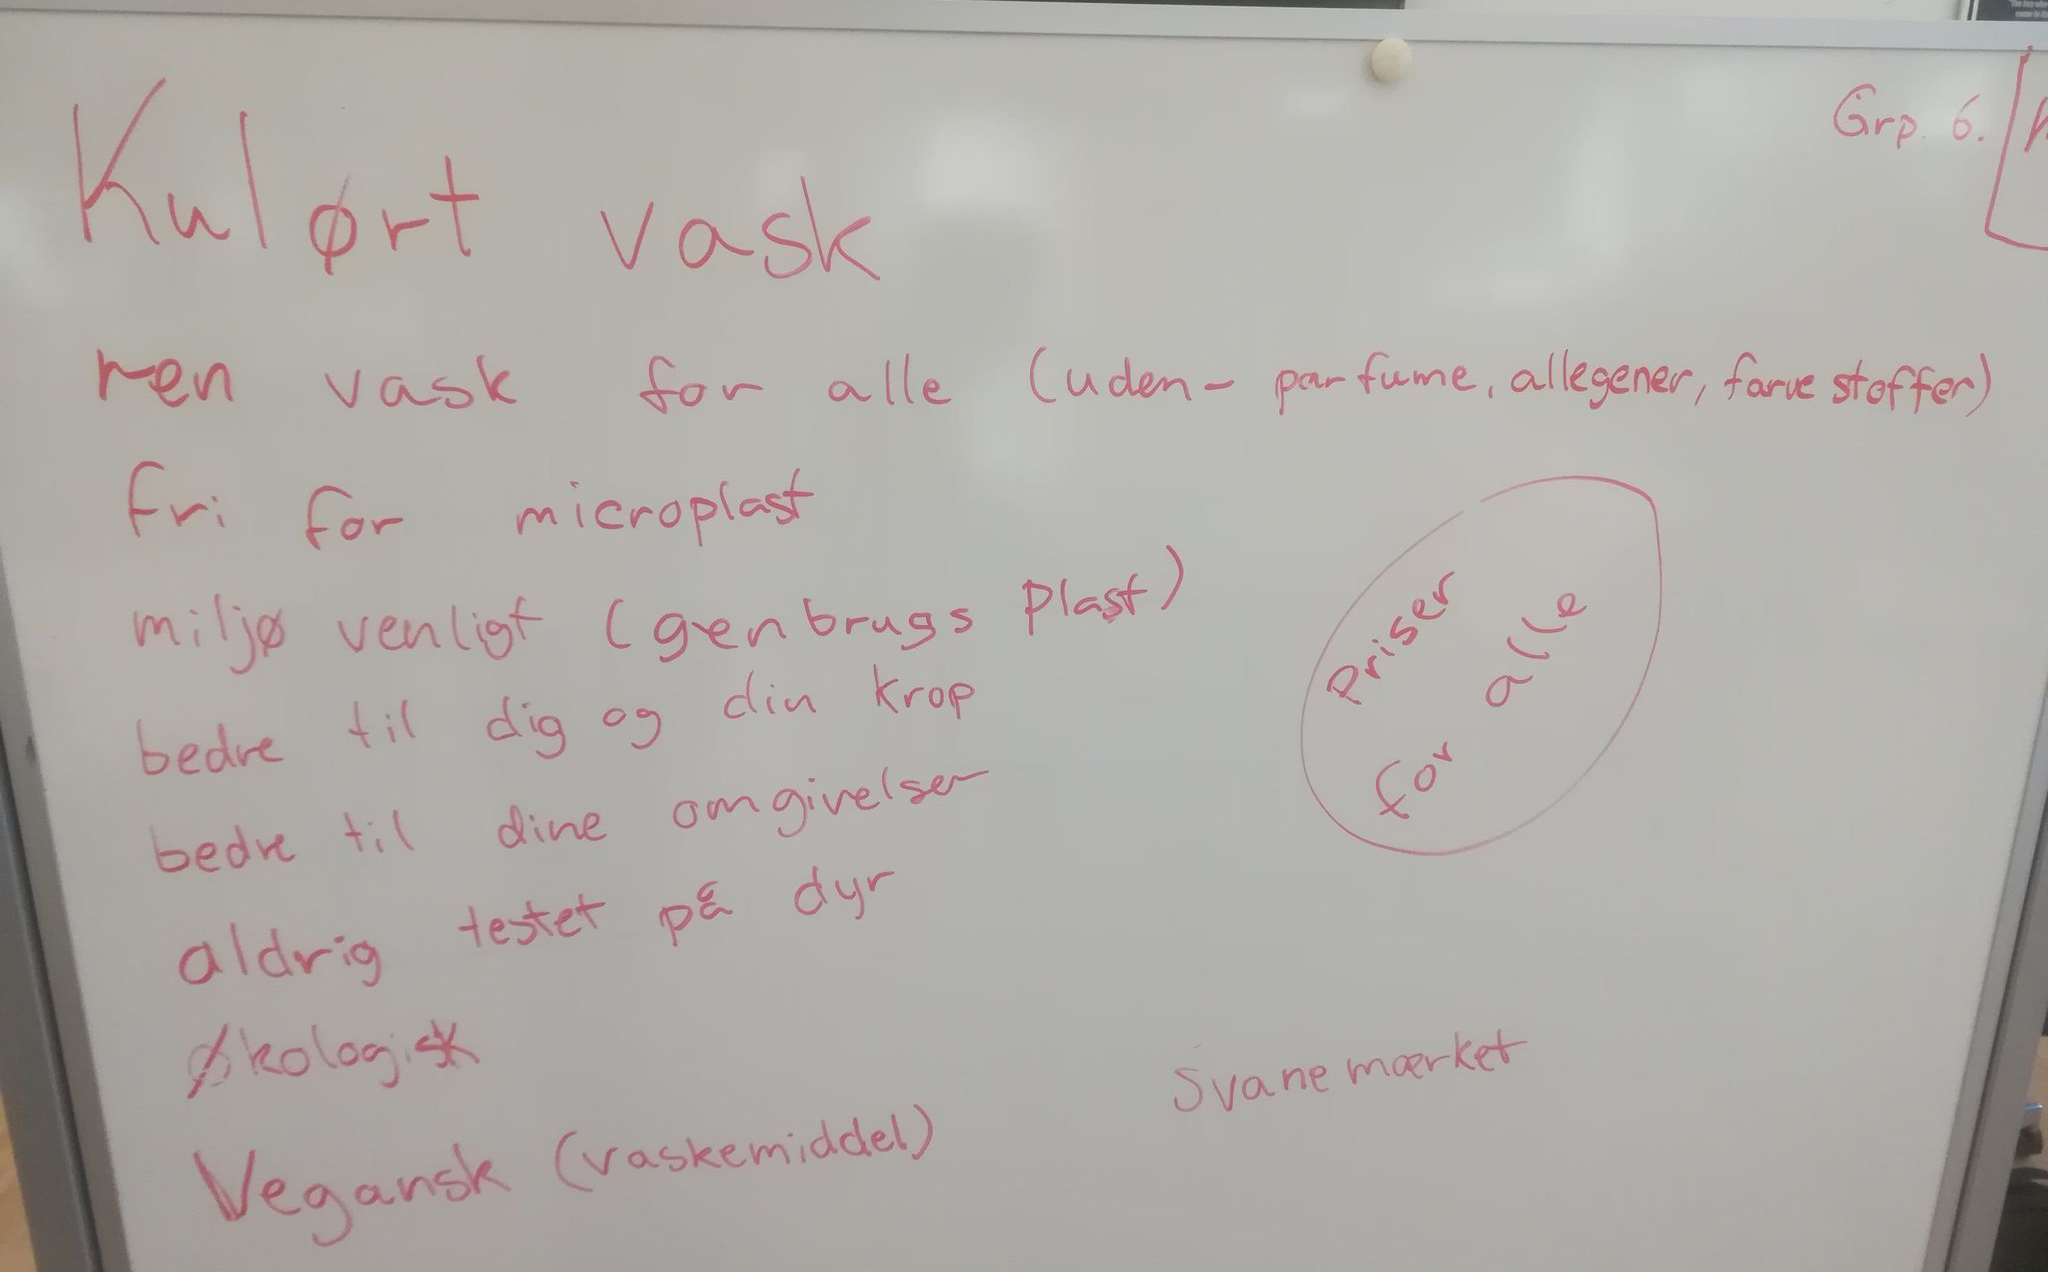 Grp. 6.
Kulørt vask
ren vask for alle (uden - parfume, allegener, farve stoffer)
fri for microplast
miljø venligt (genbrugs plast)
bedre til dig og din krop
bedre til dine omgivelser
aldrig testet på dyr
Økologisk
Vegansk (vaskemiddel)
Priser
for alle
Svanemærket